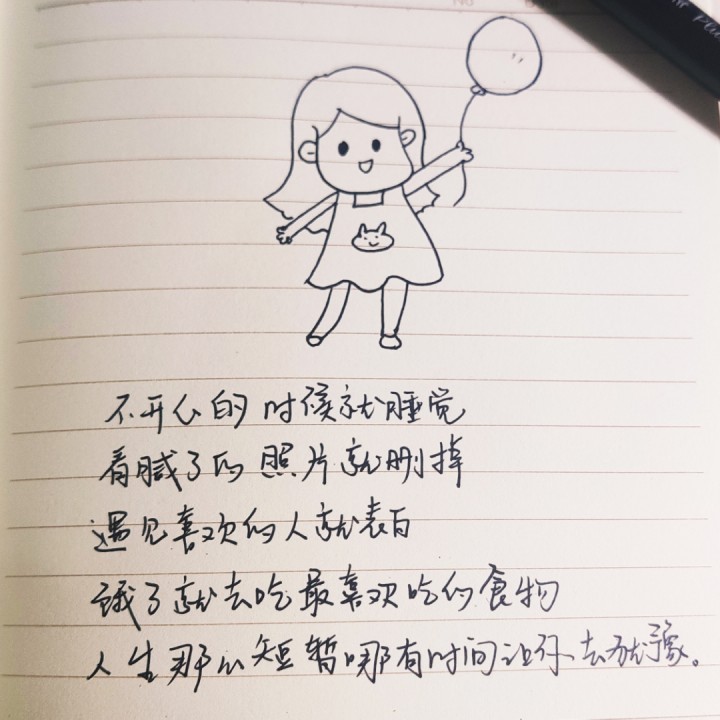 不开心的时候就睡觉
看腻了的照片就删掉
遇见喜欢的人就表白
饿了就去吃最喜欢吃的食物
人生那么短暂哪有时间让你去犹豫。